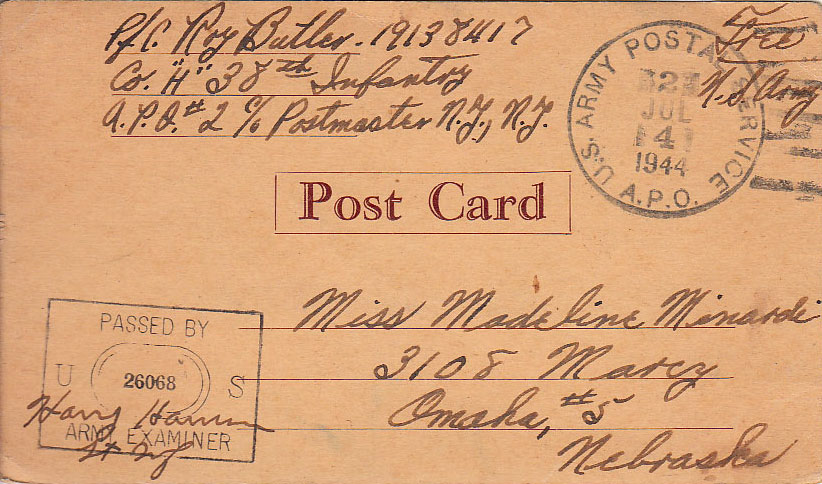 Pfc. Roy Butler - 19138417
Co. "H" 38th Infantry
A.P.O. #2 c/o Postmaster N.Y., N.Y.
Free
U.S. Army
U.S. ARMY POSTAL SERVICE
2
JUL
4
1944
A.P.O.
Post Card
PASSED BY
U 26068 S
Harry
ARMY EXAMINER
Miss Madeline Minardi
3108 Marcy
Omaha, #5
Nebraska